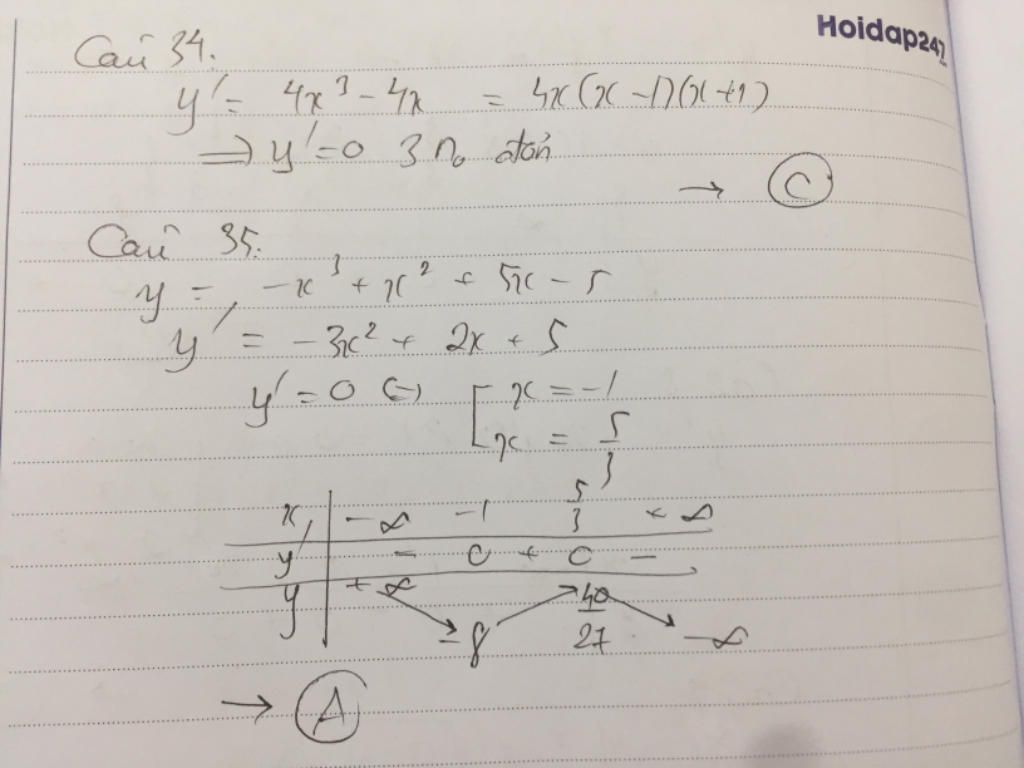 Hoidap247
Câu 34.
y' = 4x³ - 4x = 4x(x-1)(x+1)
⇒ y' = 0 3 n₀ đơn
→ C
Câu 35.
y = -x³ + x² + 5x - 5
y' = -3x² + 2x + 5
y' = 0 (=) [ x = -1
x = 5/3
x | -∞ -1 5/3 +∞
y' | - 0 + 0 -
y | +∞ -8 40/27 -∞
→ A